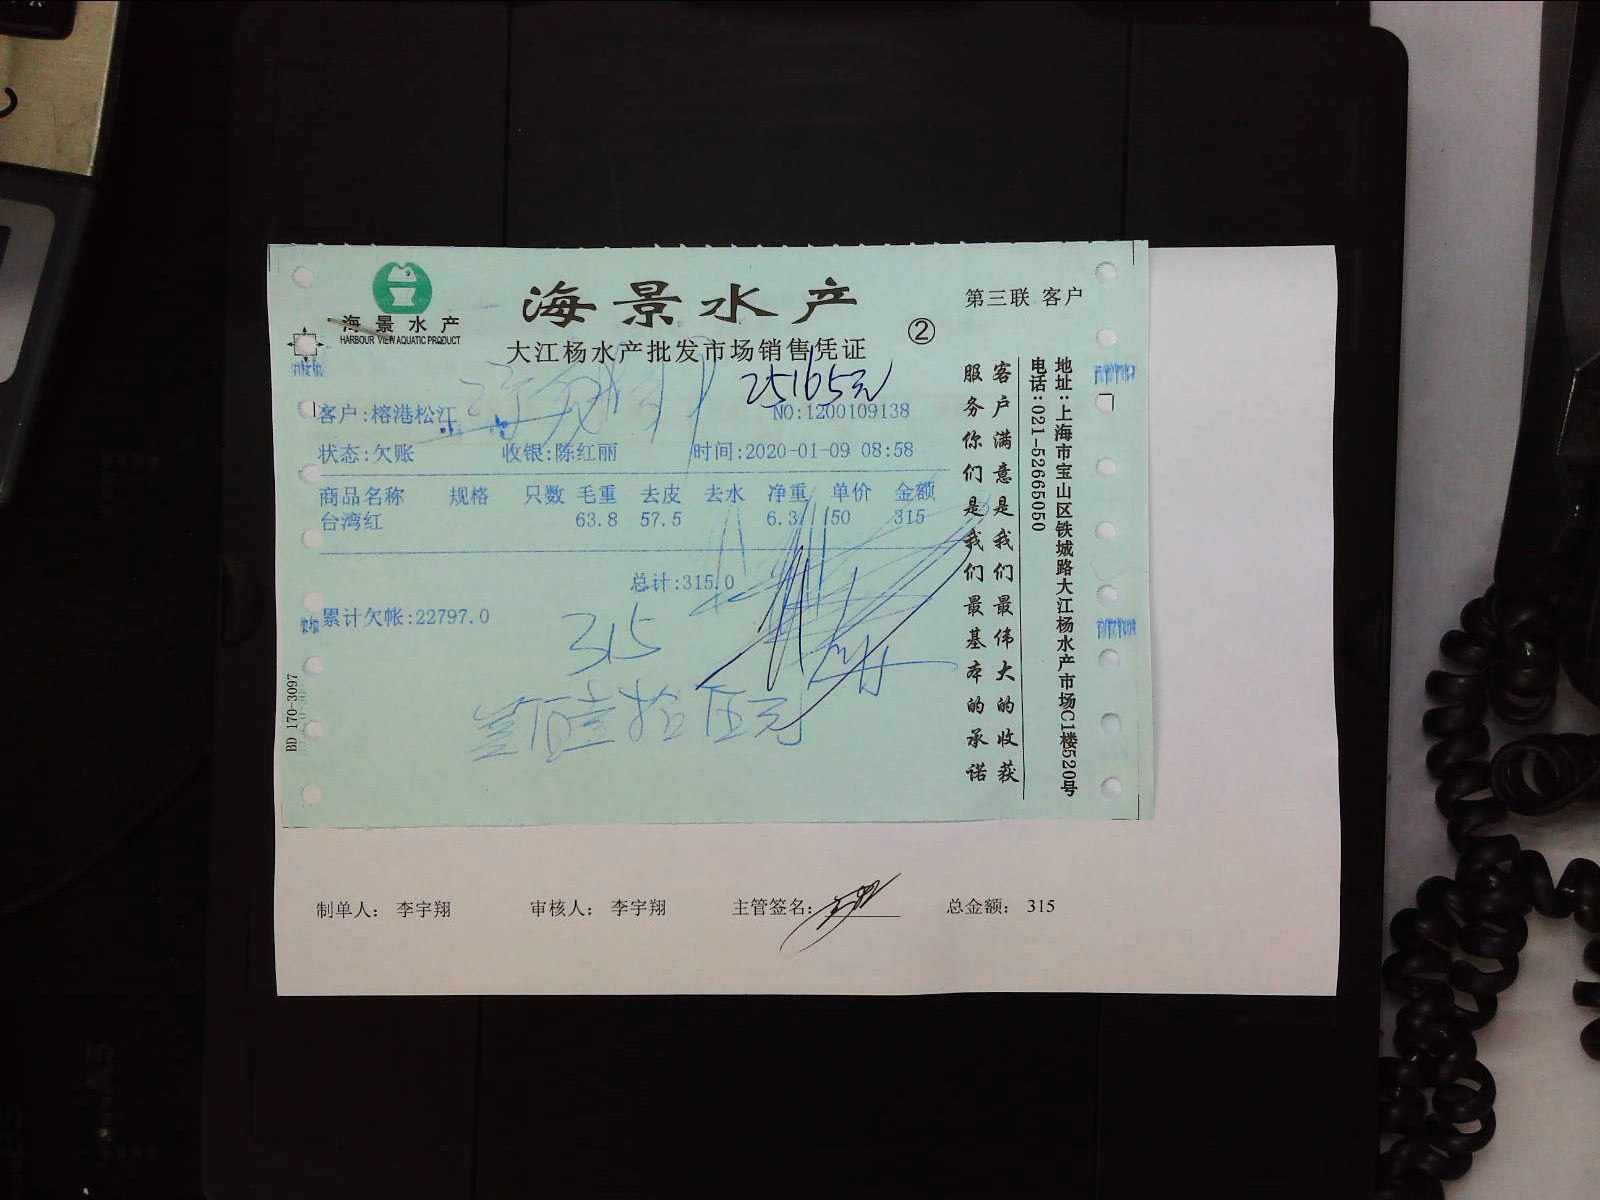 海景水产
HARBOUR VIEW AQUATIC PRODUCT
海景水产
第三联 客户
大江杨水产批发市场销售凭证
②
25165元
客户:榕港松江
NO:1200109138
状态:欠账 收银:陈红丽 时间:2020-01-09 08:58
商品名称 规格 只数 毛重 去皮 去水 净重 单价 金额
台湾红 63.8 57.5 6.3 50 315
总计:315.0
累计欠帐:22797.0
315
叁佰壹拾伍元
BD 170-3097
客户满意是我们最伟大的收获
服务你们是我们最基本的承诺
地址:上海市宝山区铁城路大江杨水产市场C1楼520号
电话:021-52665050
制单人: 李宇翔 审核人: 李宇翔 主管签名: 总金额: 315